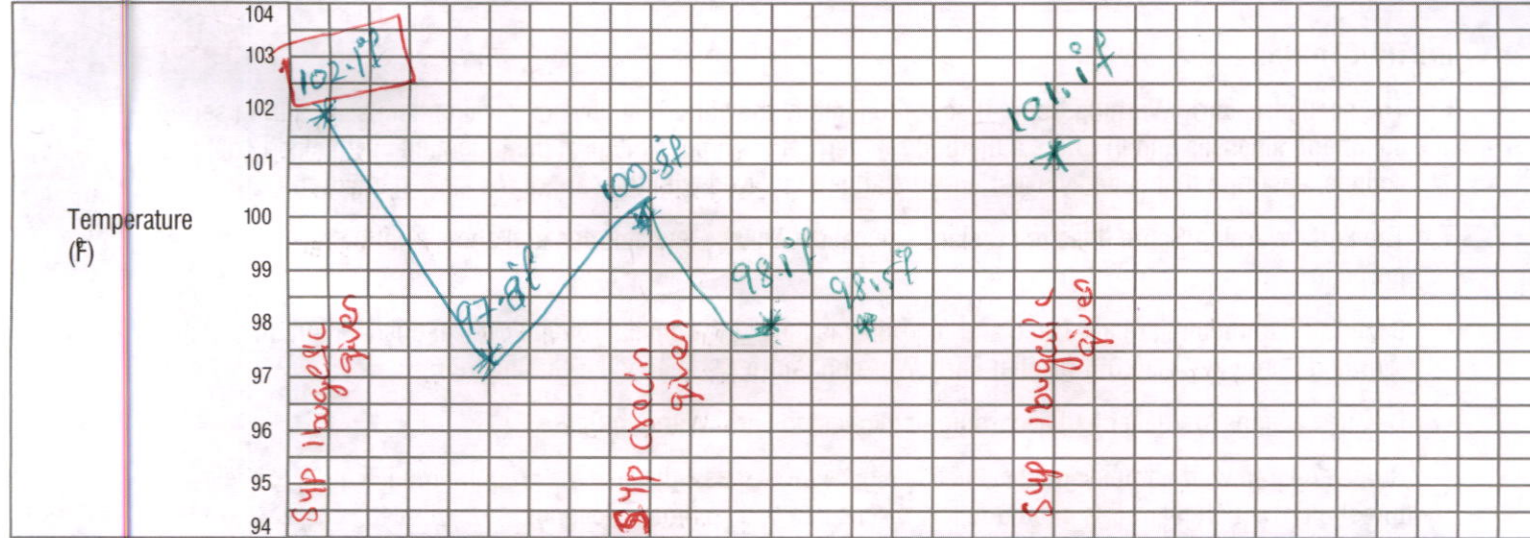 104
103
102
101
100
99
98
97
96
95
94
Temperature
(°F)
102.1°f
97.8°f
100.8°f
98.1°f
98.5°f
101.1°f
Syp Ibugesic
given
Syp Crocin
given
Syp Ibugesic
given